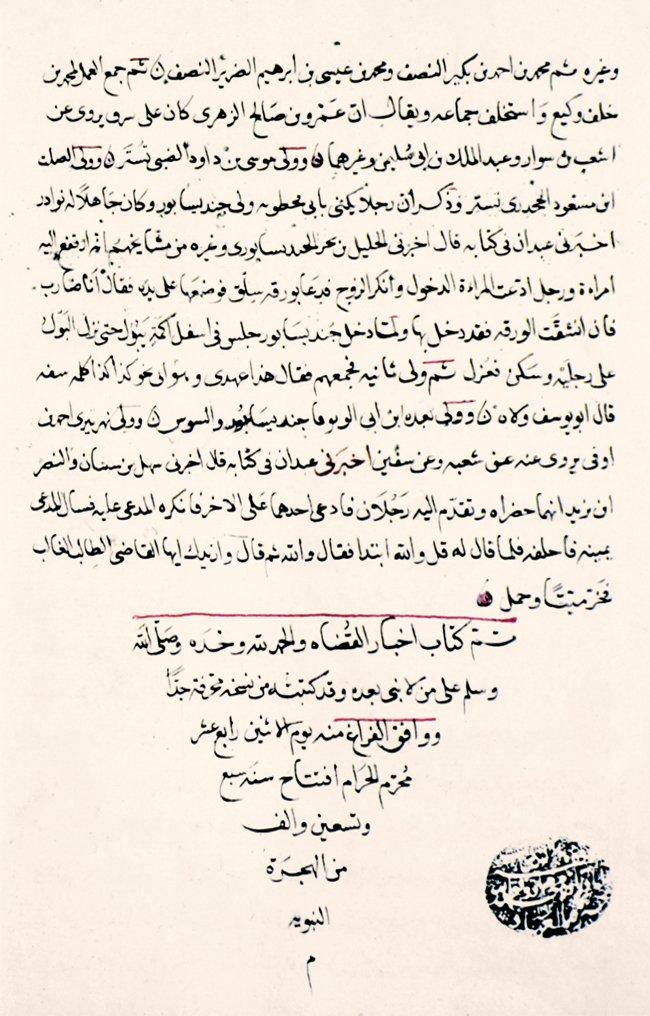 وغيره ثم محمد بن احمد بن بكير النصف ومحمد بن عيسى بن ابرهيم الضرير النصف ثم جمع العمل لمحمد بن
خلف وكيع واستخلف جماعه ويقال ان عمرو بن صالح الزهري كان على سرق يروى عن
اشعب بن سوار وعبد الملك بن ابى سليمن وغيرهما وولى موسى بن داود الضبى تستر وولى الصلت
ابن مسعود الجحدرى تستر وذكر ان رجلا يكنى بابى محطويه ولى جنديسابور وكان جاهلا له نوادر
اخبرنى عبدان فى كتابه قال اخبرنى الخليل بن بحر الجنديسابورى وغيره من مشايخهم انه ارتفع اليه
امراة ورجل ادعت المراءة الدخول وانكر الزوج فدعا بورقه سلق فوضعها على يده فقال انا ضارب
فان انشقت الورقه فقد دخل بها ولما دخل جنديسابور جلس فى اسفل اكمة يبول حتى نزل البول
على رجليه وسكن فعزل ثم ولى ثانيه فجمعهم فقال هذا عهدى كذا كذا كلمه سفه
قال ابو يوسف ولاه وولى بعده ابن ابى الوبر قا جنديسابور والسوس وولى نهرتيرى احمد بن
اوفى يروى عنه عن شعبه وعن سفين اخبرنى عبدان فى كتابه قال اخبرنى سهل بن سنان والنضر
ابن يزيد انهما حضراه وتقدم اليه رجلان فادعى احدهما على الاخر فانكره المدعى عليه فسال المدعى
يمينه فاحلفه فلما قال له قل والله ابتدا فقال والله ثم قال وازيدك ايها القاضى الطالب الغالب
فخر ميتا وحمل
تم كتاب اخبار القضاه والحمد لله وحده وصلى الله
وسلم على من لا نبى بعده وقد كتبته من نسخه محرفة جدا
ووافق الفراغ منه يوم الاثنين رابع عشر
محرم الحرام افتتاح سنة سبع
وتسعين والف
من الهجرة
النبويه
م